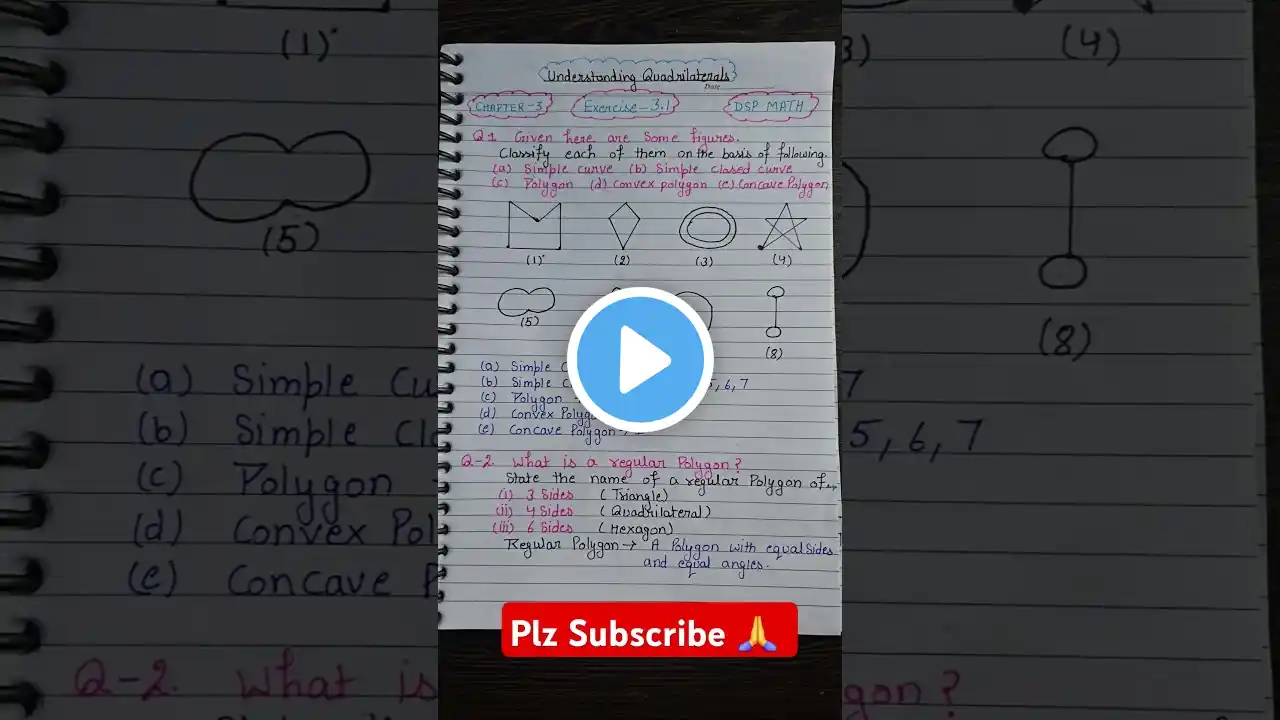 Understanding Quadrilaterals
Date
CHAPTER-3 Exercise-3.1 DSP MATH
Q1 Given here are some figures.
Classify each of them on the basis of following.
(a) Simple curve (b) Simple closed curve
(c) Polygon (d) convex polygon (e) Concave Polygon
(1) (2) (3) (4)
(5)
(8)
(a) Simple
(b) Simple 5, 6, 7
(c) Polygon
(d) Convex
(e) Concave Polygon →
Q-2. What is a regular Polygon?
State the name of a regular Polygon of
(i) 3 Sides (Triangle)
(ii) 4 Sides (Quadrilateral)
(iii) 6 Sides (Hexagon)
Regular Polygon → A Polygon with equal Sides
and equal angles.
Plz Subscribe 🙏
(1)
(5)
(a) Simple
(b) Simple
(c) Polygon
(d) Convex
(e) Concave
Q-2. What is
(4)
(8)
7
5, 6, 7